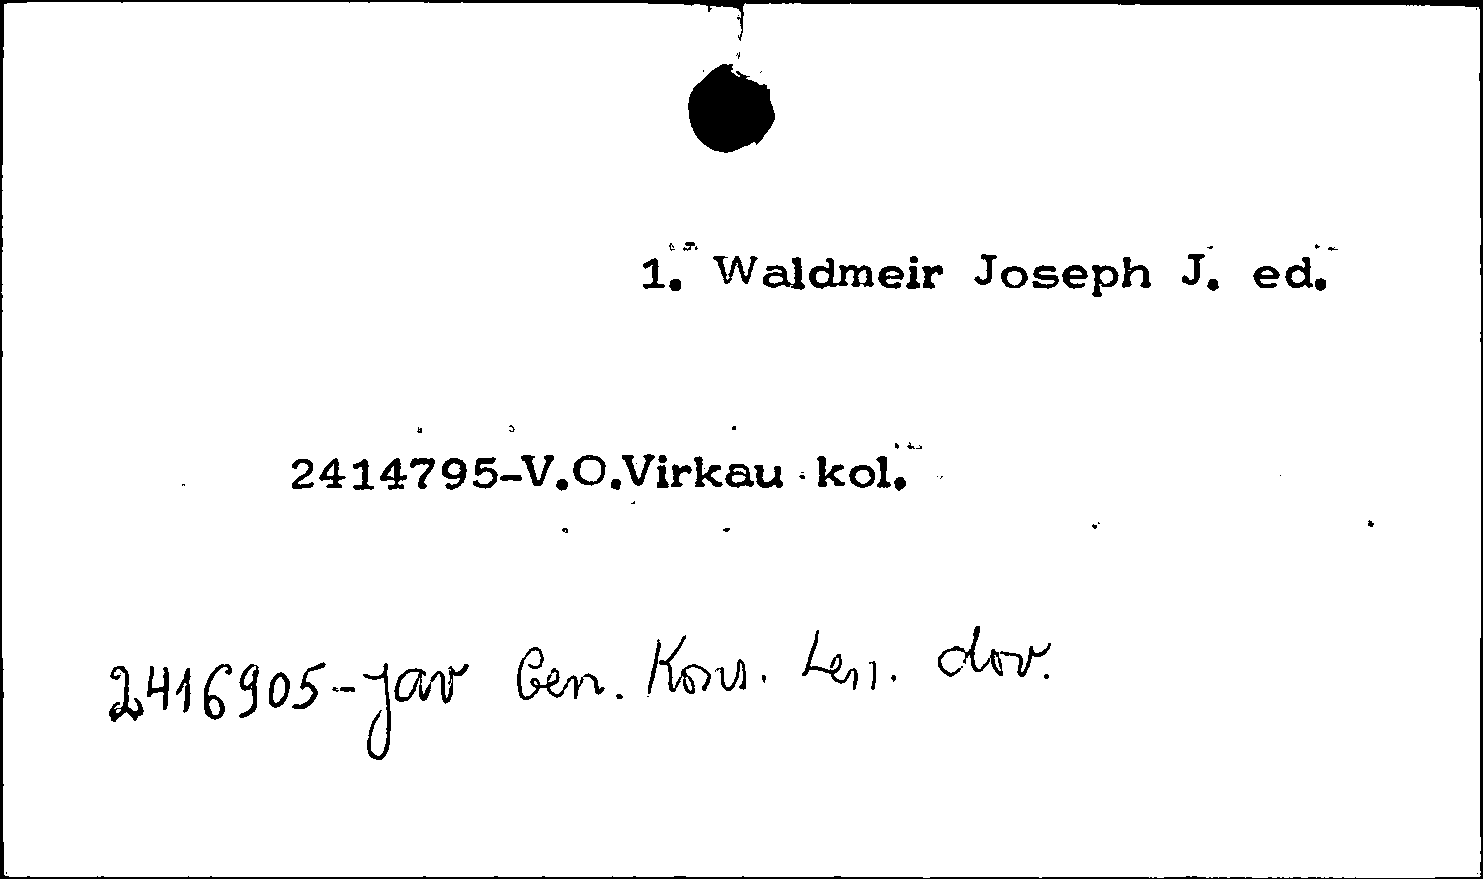 1. Waldmeir Joseph J. ed.
2414795-V.O.Virkau kol.
2416905-JAV Gen. Kons. Len. dov.